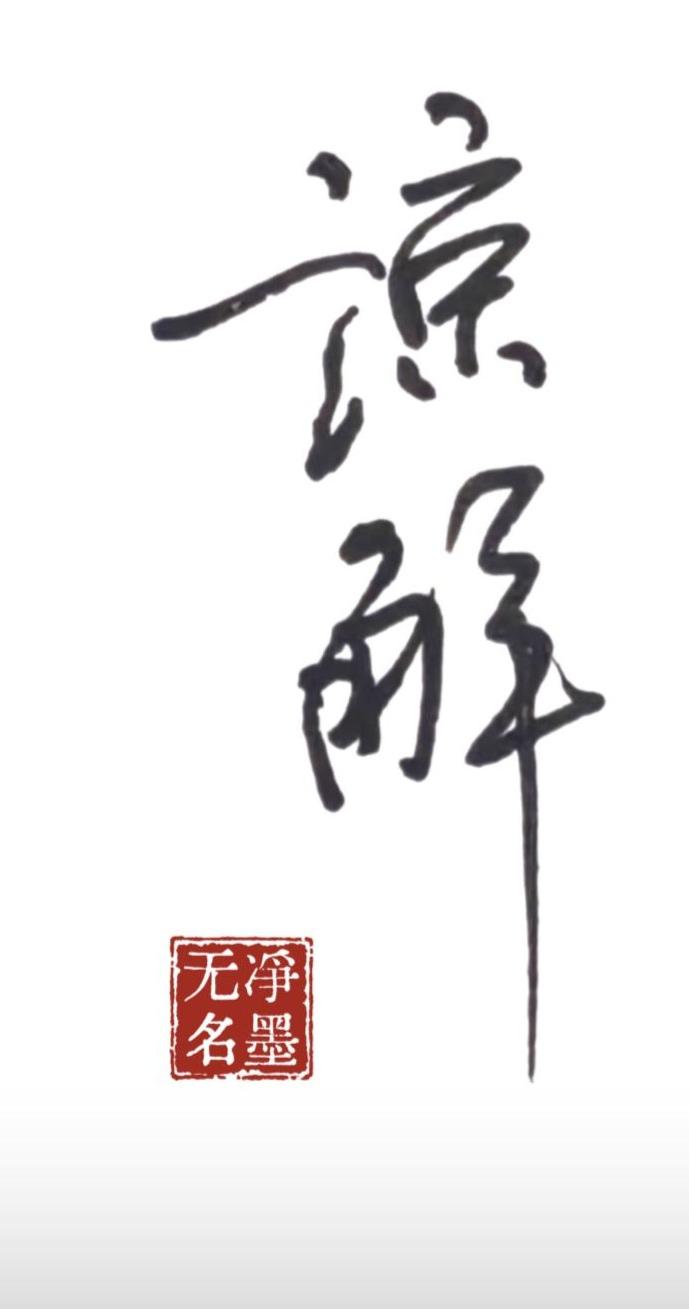 谅解
净墨
无名